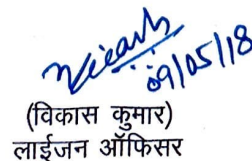 Vikash
09/05/18
(विकास कुमार)
लाईजन ऑफिसर